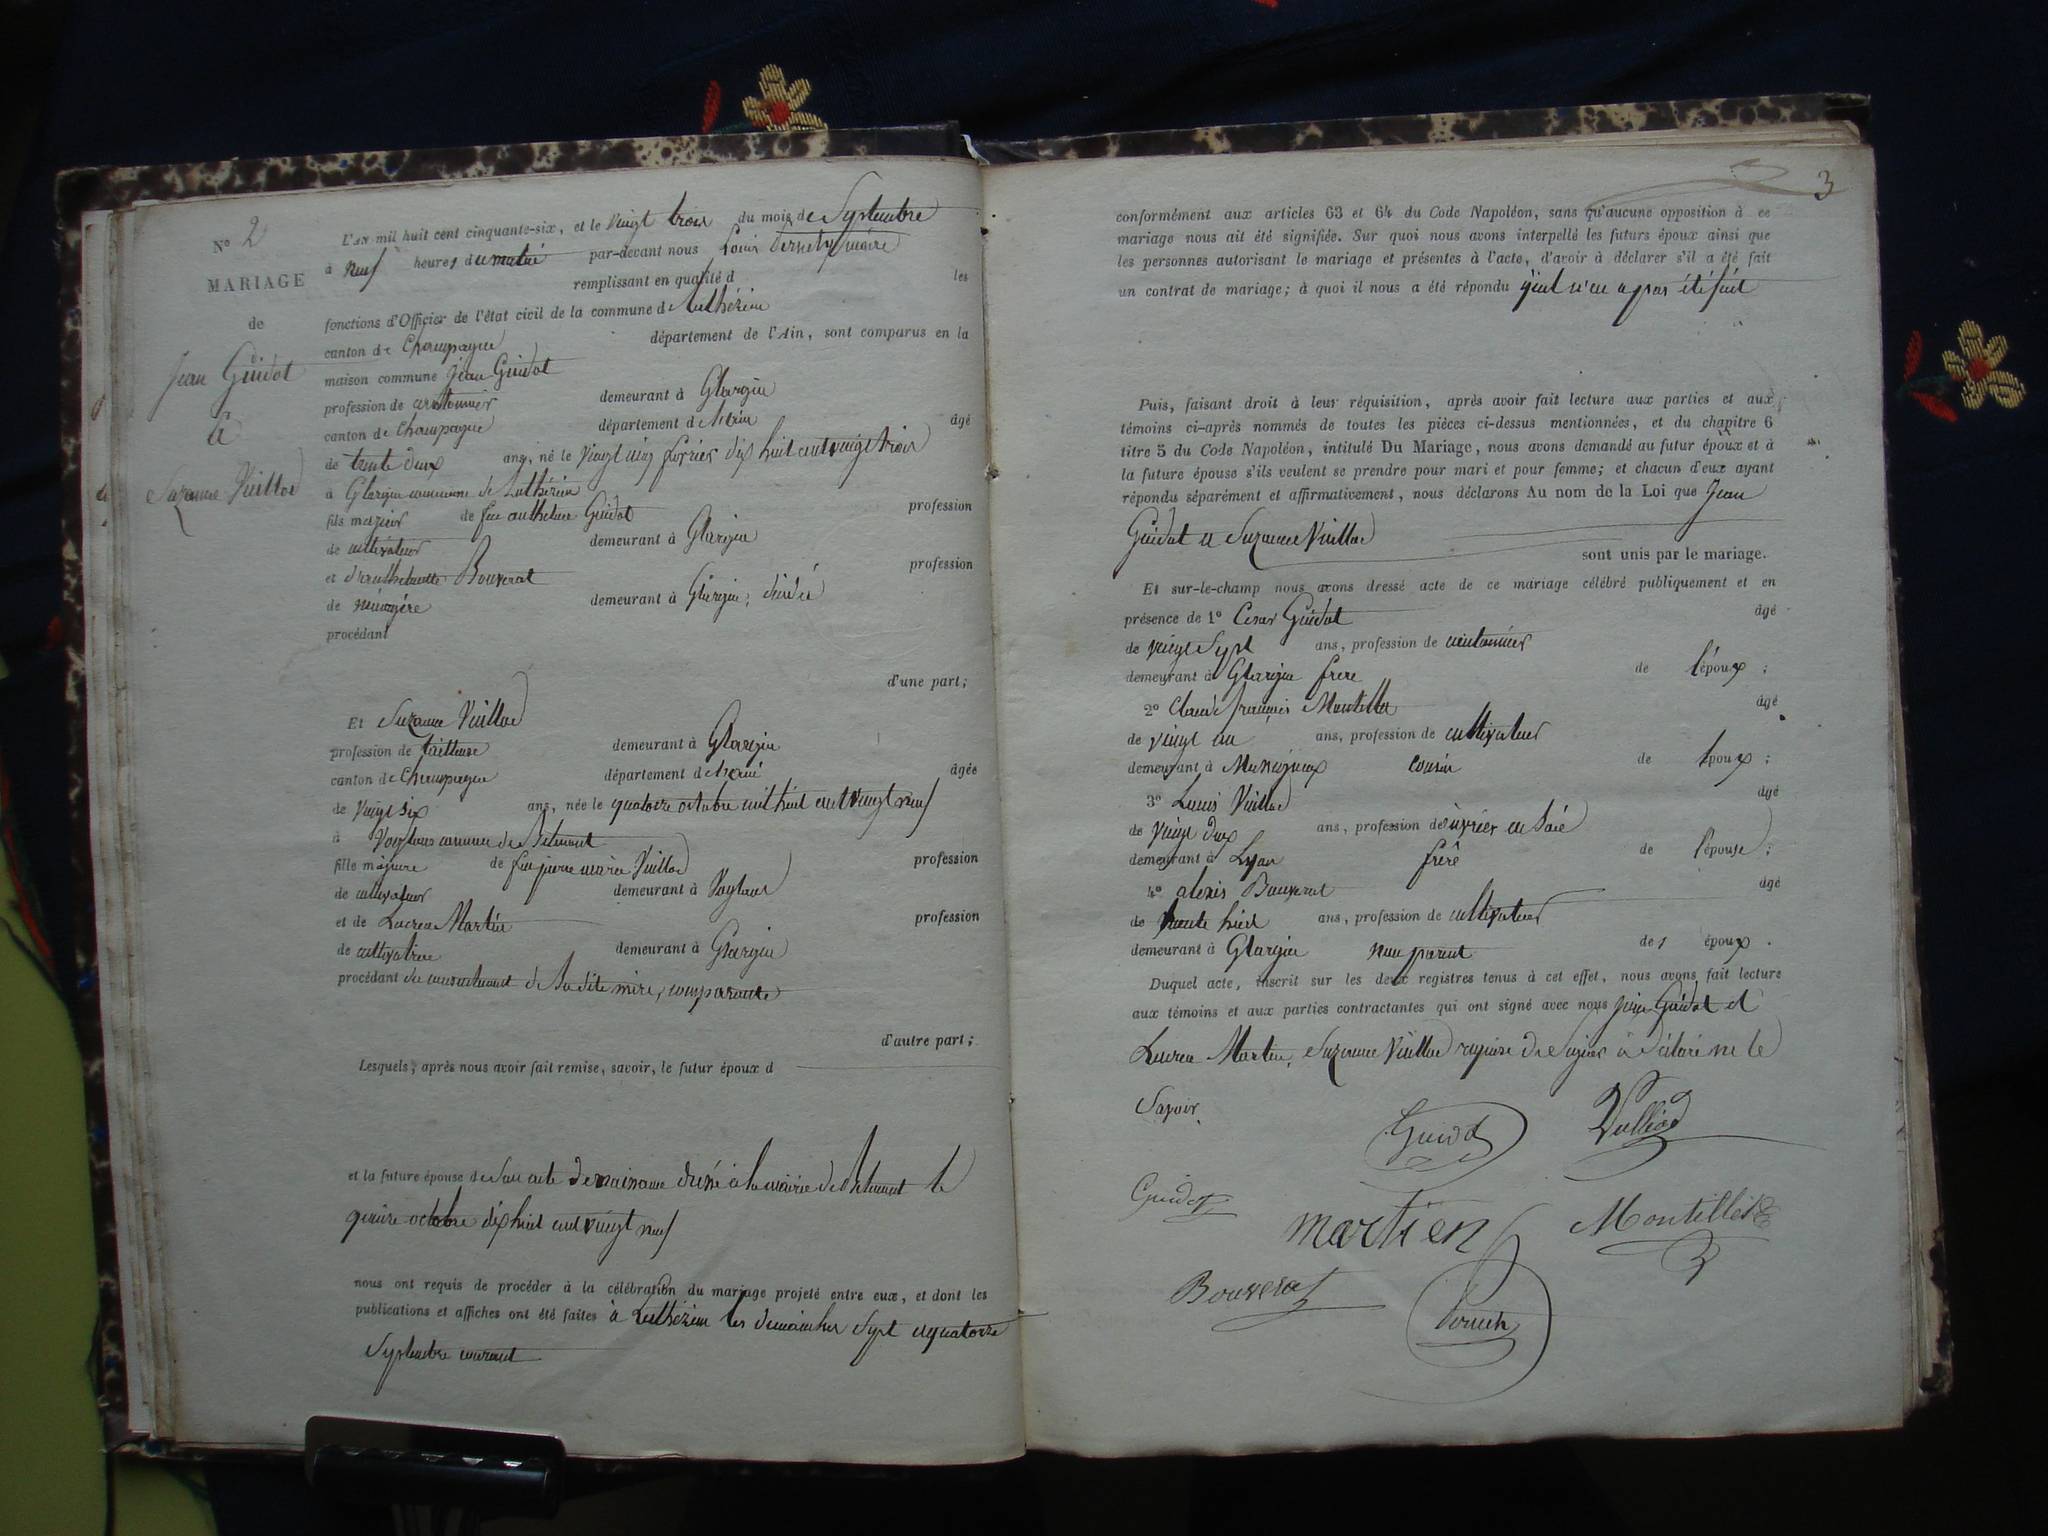 N° 2
MARIAGE
de
Jean Guidot
à
Suzanne Vuillod
L'AN mil huit cent cinquante-six, et le vingt trois du mois de Septembre
à neuf heures du matin par-devant nous Louis maire
remplissant en qualité d les
fonctions d'Officier de l'état civil de la commune de Luthézieu
canton de Champagne département de l'Ain, sont comparus en la
maison commune Jean Guidot
profession de cantonnier demeurant à Glargin
canton de Champagne département de l'ain âgé
de trente deux ans, né le vingt cinq février dix huit cent vingt trois
à Glargin commune de Luthézieu
fils majeur de feu anthelme Guidot profession
de cultivateur demeurant à Glargin
et d'anthelmette Bouverat profession
de ménagère demeurant à Glargin, décédée
procédant
d'une part;
Et Suzanne Vuillod
profession de tailleuse demeurant à Glargin
canton de Champagne département de l'ain âgée
de vingt six ans, née le quatorze octobre mil huit cent vingt neuf
à commune de Belmont
fille majeure de feu pierre marie Vuillod profession
de cultivateur demeurant à
et de Lucrèce Martin profession
de cultivatrice demeurant à Glargin
procédant du consentement de Sa dite mère, comparante
d'autre part;
Lesquels, après nous avoir fait remise, savoir, le futur époux d
et la future épouse de Son acte de naissance dressé à la mairie de Belmont le
quinze octobre dix huit cent vingt neuf
nous ont requis de procéder à la célébration du mariage projeté entre eux, et dont les
publications et affiches ont été faites à Luthézieu les dimanches Sept et quatorze
Septembre courant
3
conformément aux articles 63 et 64 du Code Napoléon, sans qu'aucune opposition à ce
mariage nous ait été signifiée. Sur quoi nous avons interpellé les futurs époux ainsi que
les personnes autorisant le mariage et présentes à l'acte, d'avoir à déclarer s'il a été fait
un contrat de mariage; à quoi il nous a été répondu qu'il n'en a pas été fait
Puis, faisant droit à leur réquisition, après avoir fait lecture aux parties et aux
témoins ci-après nommés de toutes les pièces ci-dessus mentionnées, et du chapitre 6
titre 5 du Code Napoléon, intitulé Du Mariage, nous avons demandé au futur époux et à
la future épouse s'ils veulent se prendre pour mari et pour femme; et chacun d'eux ayant
répondu séparément et affirmativement, nous déclarons Au nom de la Loi que Jean
Guidot et Suzanne Vuillod
sont unis par le mariage.
Et sur-le-champ nous avons dressé acte de ce mariage célébré publiquement et en
présence de 1° Cesar Guidot âgé
de vingt Sept ans, profession de cantonnier
demeurant à Glargin frere de l'époux;
2° Claude françois Montillet âgé
de vingt un ans, profession de cultivateur
demeurant à cousin de l'époux;
3° Louis Vuillod âgé
de vingt deux ans, profession de ouvrier en Soie
demeurant à Lyon frère de l'épouse;
4° alexis Bouverat âgé
de trente huit ans, profession de cultivateur
demeurant à Glargin non parent des époux.
Duquel acte, inscrit sur les deux registres tenus à cet effet, nous avons fait lecture
aux témoins et aux parties contractantes qui ont signé avec nous Jean Guidot et
Lucrèce Martin, Suzanne Vuillod requise de Signer a déclaré ne le
Savoir
Guidot
Vulliod
Guidot
martien
Montillet
Bouverat